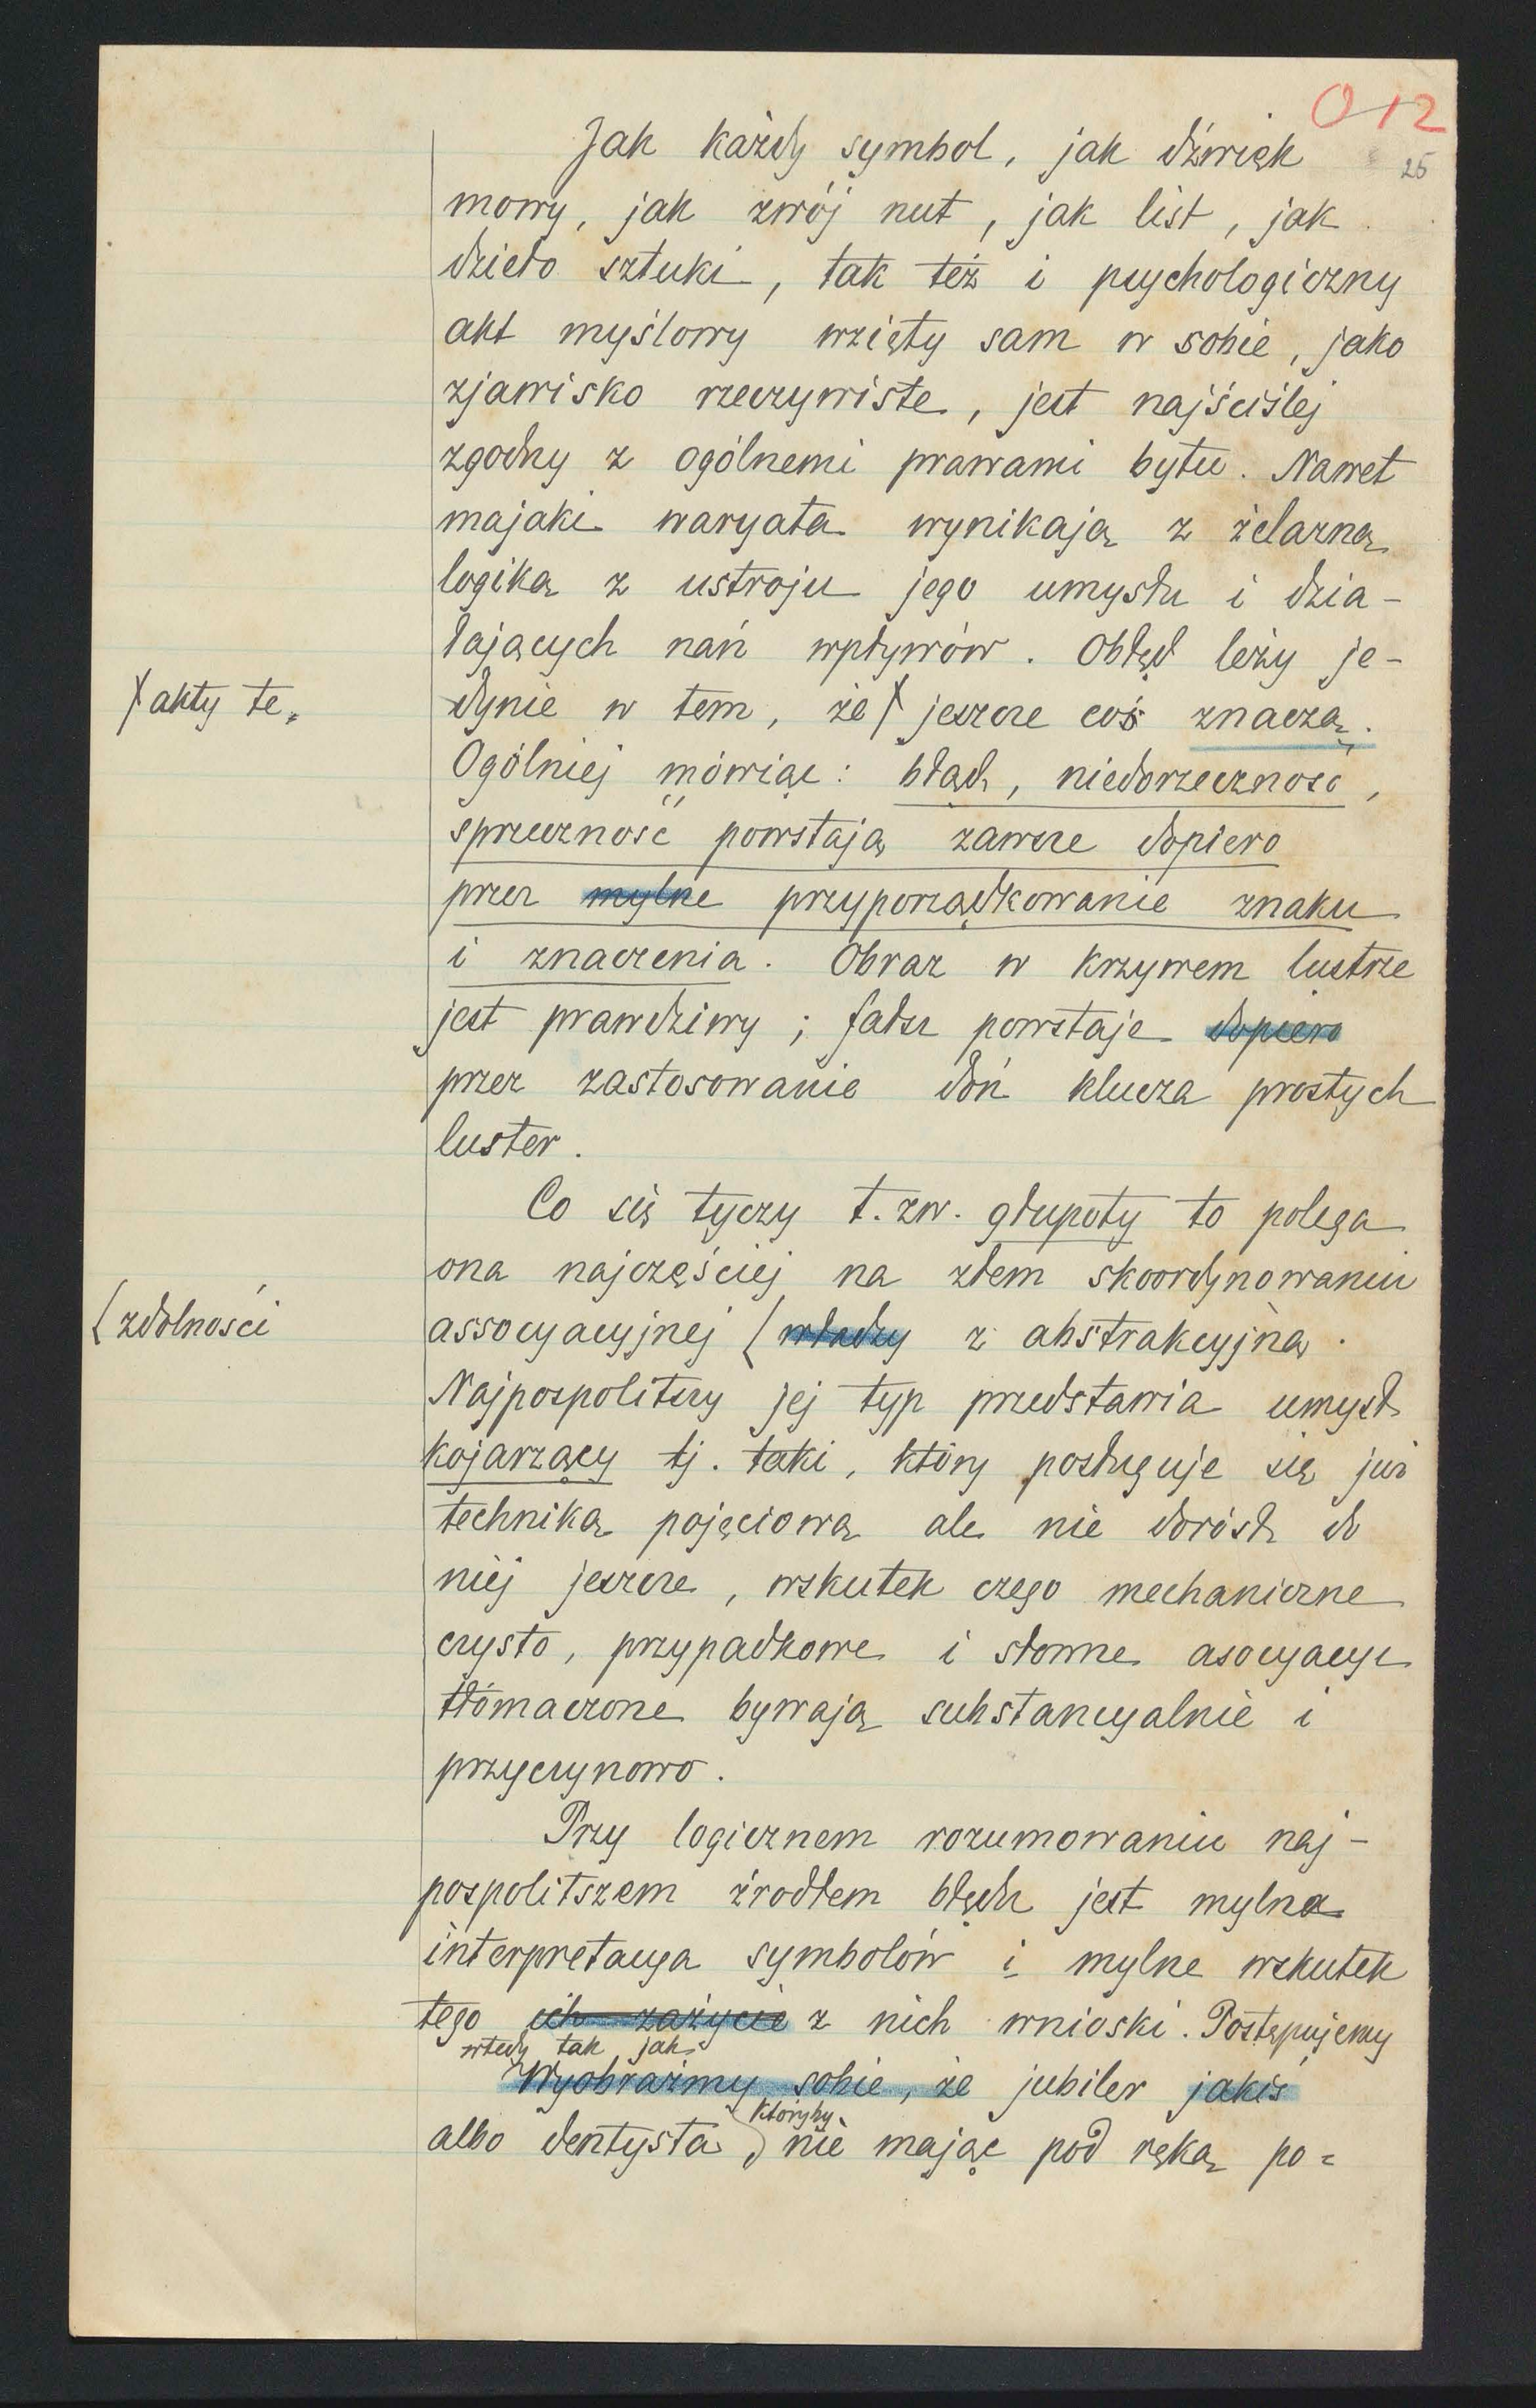 012
25
Jak każdy symbol, jak dźwięk
mowy, jak zwój nut, jak list, jak
dzieło sztuki, tak też i psychologiczny
akt myślowy wzięty sam w sobie, jako
zjawisko rzeczywiste, jest najściślej
zgodny z ogólnemi prawami bytu. Nawet
majaki waryata wynikają z żelazną
logiką z ustroju jego umysłu i dzia-
łających nań wpływów. Obłęd leży je-
akty te
dynie w tem, że jeszcze coś znaczą.
Ogólniej mówiąc: błąd, niedorzeczność,
sprzeczność powstają zawsze dopiero
przez mylne przyporządkowanie znaku
i znaczenia. Obraz w krzywem lustrze
jest prawdziwy; fałsz powstaje dopiero
przez zastosowanie doń klucza prostych
luster.
Co się tyczy t. zw. głupoty to polega
ona najczęściej na złem skoordynowaniu
zdolności
assocyacyjnej władzy z abstrakcyjną.
Najpospolitszy jej typ przedstawia umysł
kojarzący tj. taki, który posługuje się już
techniką pojęciową ale nie dorósł do
niej jeszcze, wskutek czego mechaniczne
czysto, przypadkowe i słowne asocyacye
tłómaczone bywają substancyalnie i
przyczynowo.
Przy logicznem rozumowaniu naj-
pospolitszem źrodłem błędu jest mylna
interpretacya symbolów i mylne wskutek
tego ich zażycie z nich wnioski. Postępujemy
wtedy tak jak
Wyobraźmy sobie, że jubiler jakiś
któryby
albo dentysta, nie mając pod ręką po=